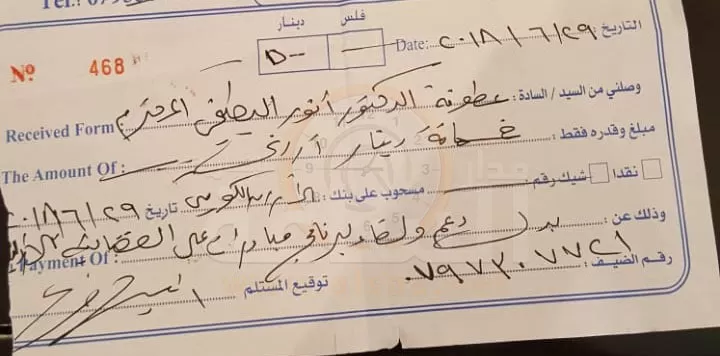 Tel.: 079
دينار فلس
التاريخ: ٢٠١٨/٦/٢٩ Date:
٥٠٠ —
Nº 468
وصلني من السيد / السادة: عطوفة الدكتور أنور المحترم Received Form
مبلغ وقدره فقط: خمسمائة دينار أردني The Amount Of :
نقدا شيك رقم: مسحوب على بنك: تاريخ ٢٠١٨/٦/٢٩
وذلك عن: بدل دعم ولقاء برنامج على الفضائية Payment Of :
رقم الضيف: توقيع المستلم